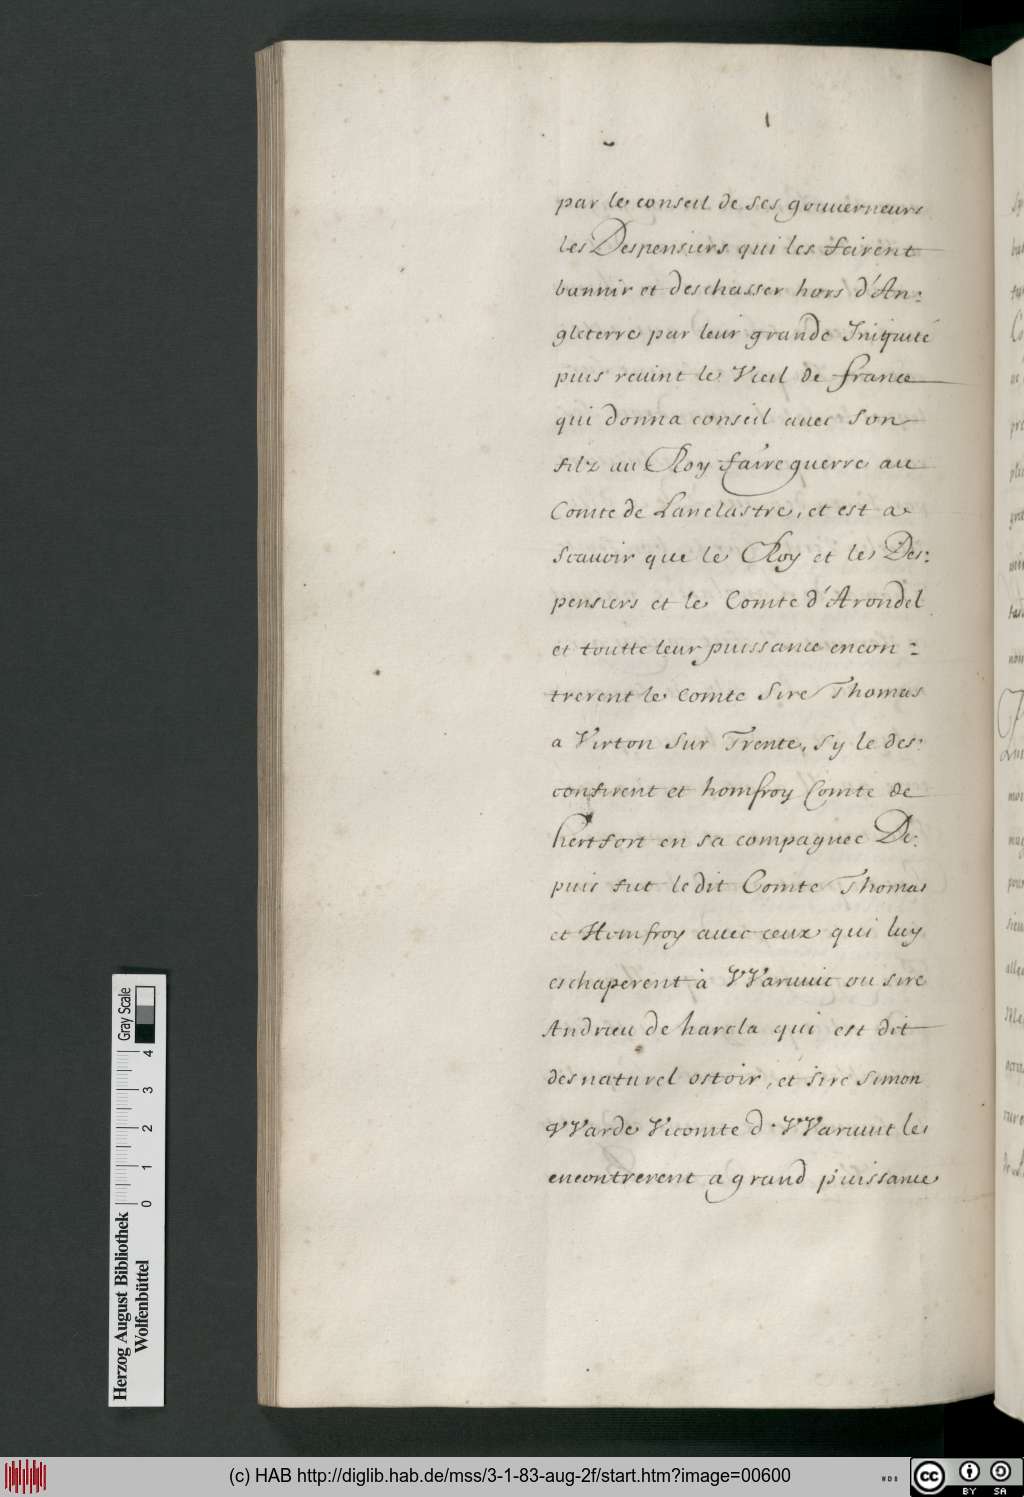 par le conseil de ses gouuerneurs
les Despensiers qui les feirent
bannir et deschasser hors d'An:
gleterre par leur grande Iniquité
puis reuint le Vieil de france
qui donna conseil auec son
filz au Roy faire guerre au
Comte de Lanclastre, et est a
scauoir que le Roy et les Des:
pensiers et le Comte d'Arondel
et toutte leur puissance encon:
trerent le Comte Sire Thomas
a Virton sur Trente, sy le des:
confirent et homfroy Comte de
hertfort en sa compagnee De:
puis fut ledit Comte Thomas
et Homfroy auec ceux qui luy
eschaperent à VVaruuic ou sire
Andrieu de harcla qui est dit
des naturel ostoir, et sire simon
VVarde Vicomte d'VVaruuit les
encontrerent a grand puissance
Herzog August Bibliothek
Wolfenbüttel
0 1 2 3 4
Gray Scale
(c) HAB http://diglib.hab.de/mss/3-1-83-aug-2f/start.htm?image=00600
WDB
cc BY SA